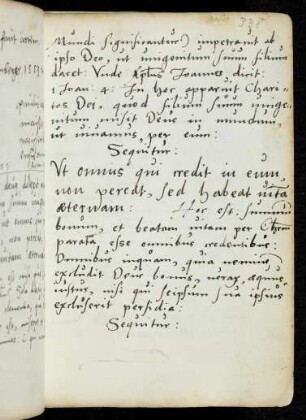 338
Mundi significantur) impetravit ab
ipso Deo, ut unigenitum suum filium
daret. Unde Aplus Ioannes dicit:
1 Ioan: 4. In hoc apparuit Chari-
tas Dei, quod filium suum unige-
nitum misit Deus in mundum,
ut vivamus, per eum:
Sequitur:
Ut omnis qui credit in eum
non pereat, sed habeat vita
aeternam: Hoc est: summum
bonum, et beatam vitam per Chrm
parata esse omnibus credentibus:
Omnibus inquam, quia neminem
excludit Deus bonus, verax, aeque
iustus, nisi qui seipsum sua ipsius
excluserit perfidia:
Sequitur: